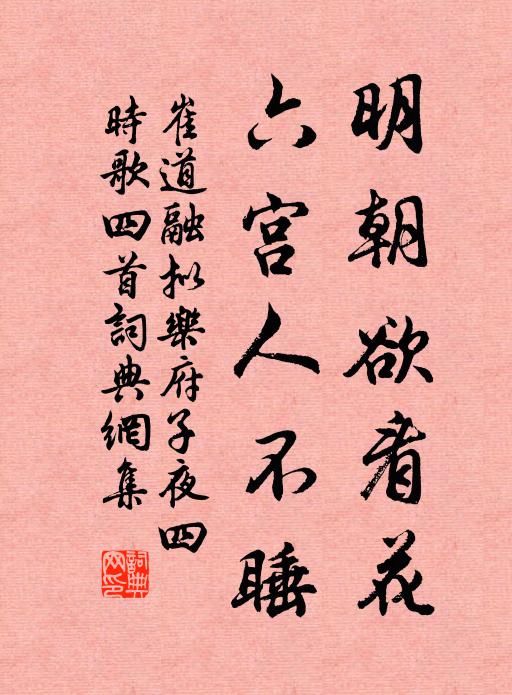 明朝欲看花
六宫人不睡
崔道融拟樂府子夜四
時歌四首詞典網集
詞典網印